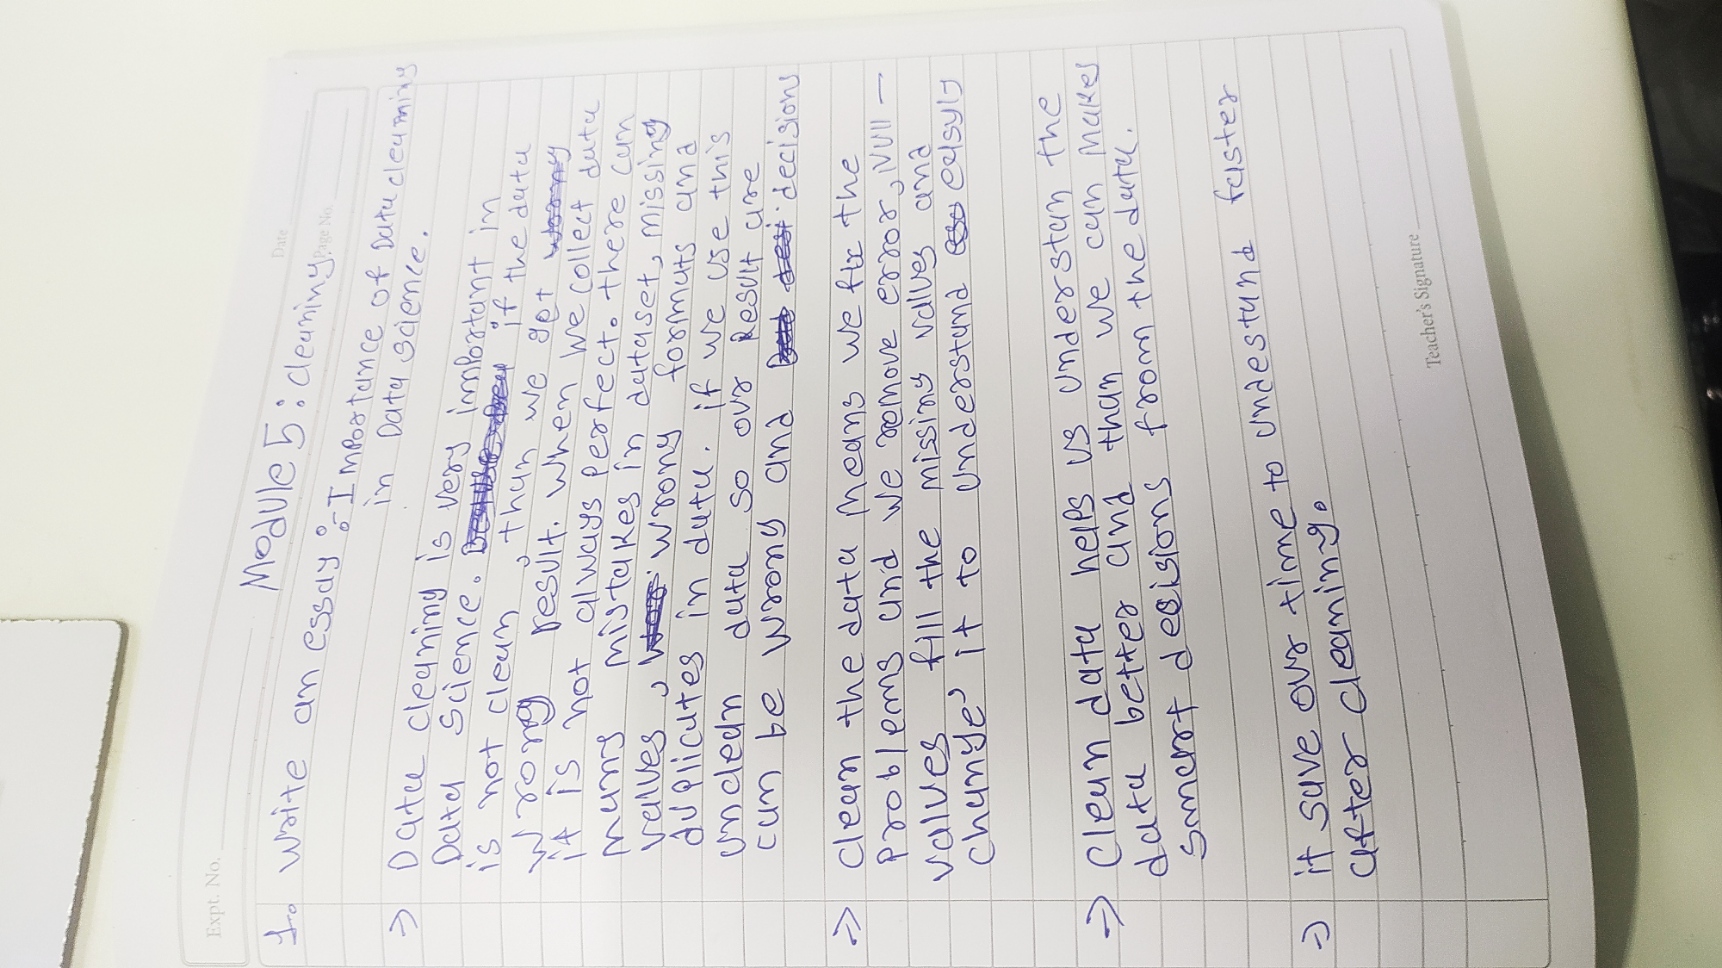 Expt. No.
Date
Module 5 : cleaning.
Page No.
1. Write an essay :- Importance of Data cleaning
in Data science.
⇒ Data cleaning is very important in
Data Science. if the data
is not clean, than we get
wrong result. When we collect data
it is not always perfect. there can
many mistakes in dataset, missing
values, wrong formats and
duplicates in data. if we use this
unclean data so our Result are
can be wrong and decisions
⇒ clean the data means we fix the
problems and we remove error, NUll -
values, fill the missing values and
change it to understand easyly
⇒ Clean data helps us understan the
data better and than we can makes
smart decisions from the data.
⇒ it save our time to undestand faster
after cleaning.
Teacher's Signature